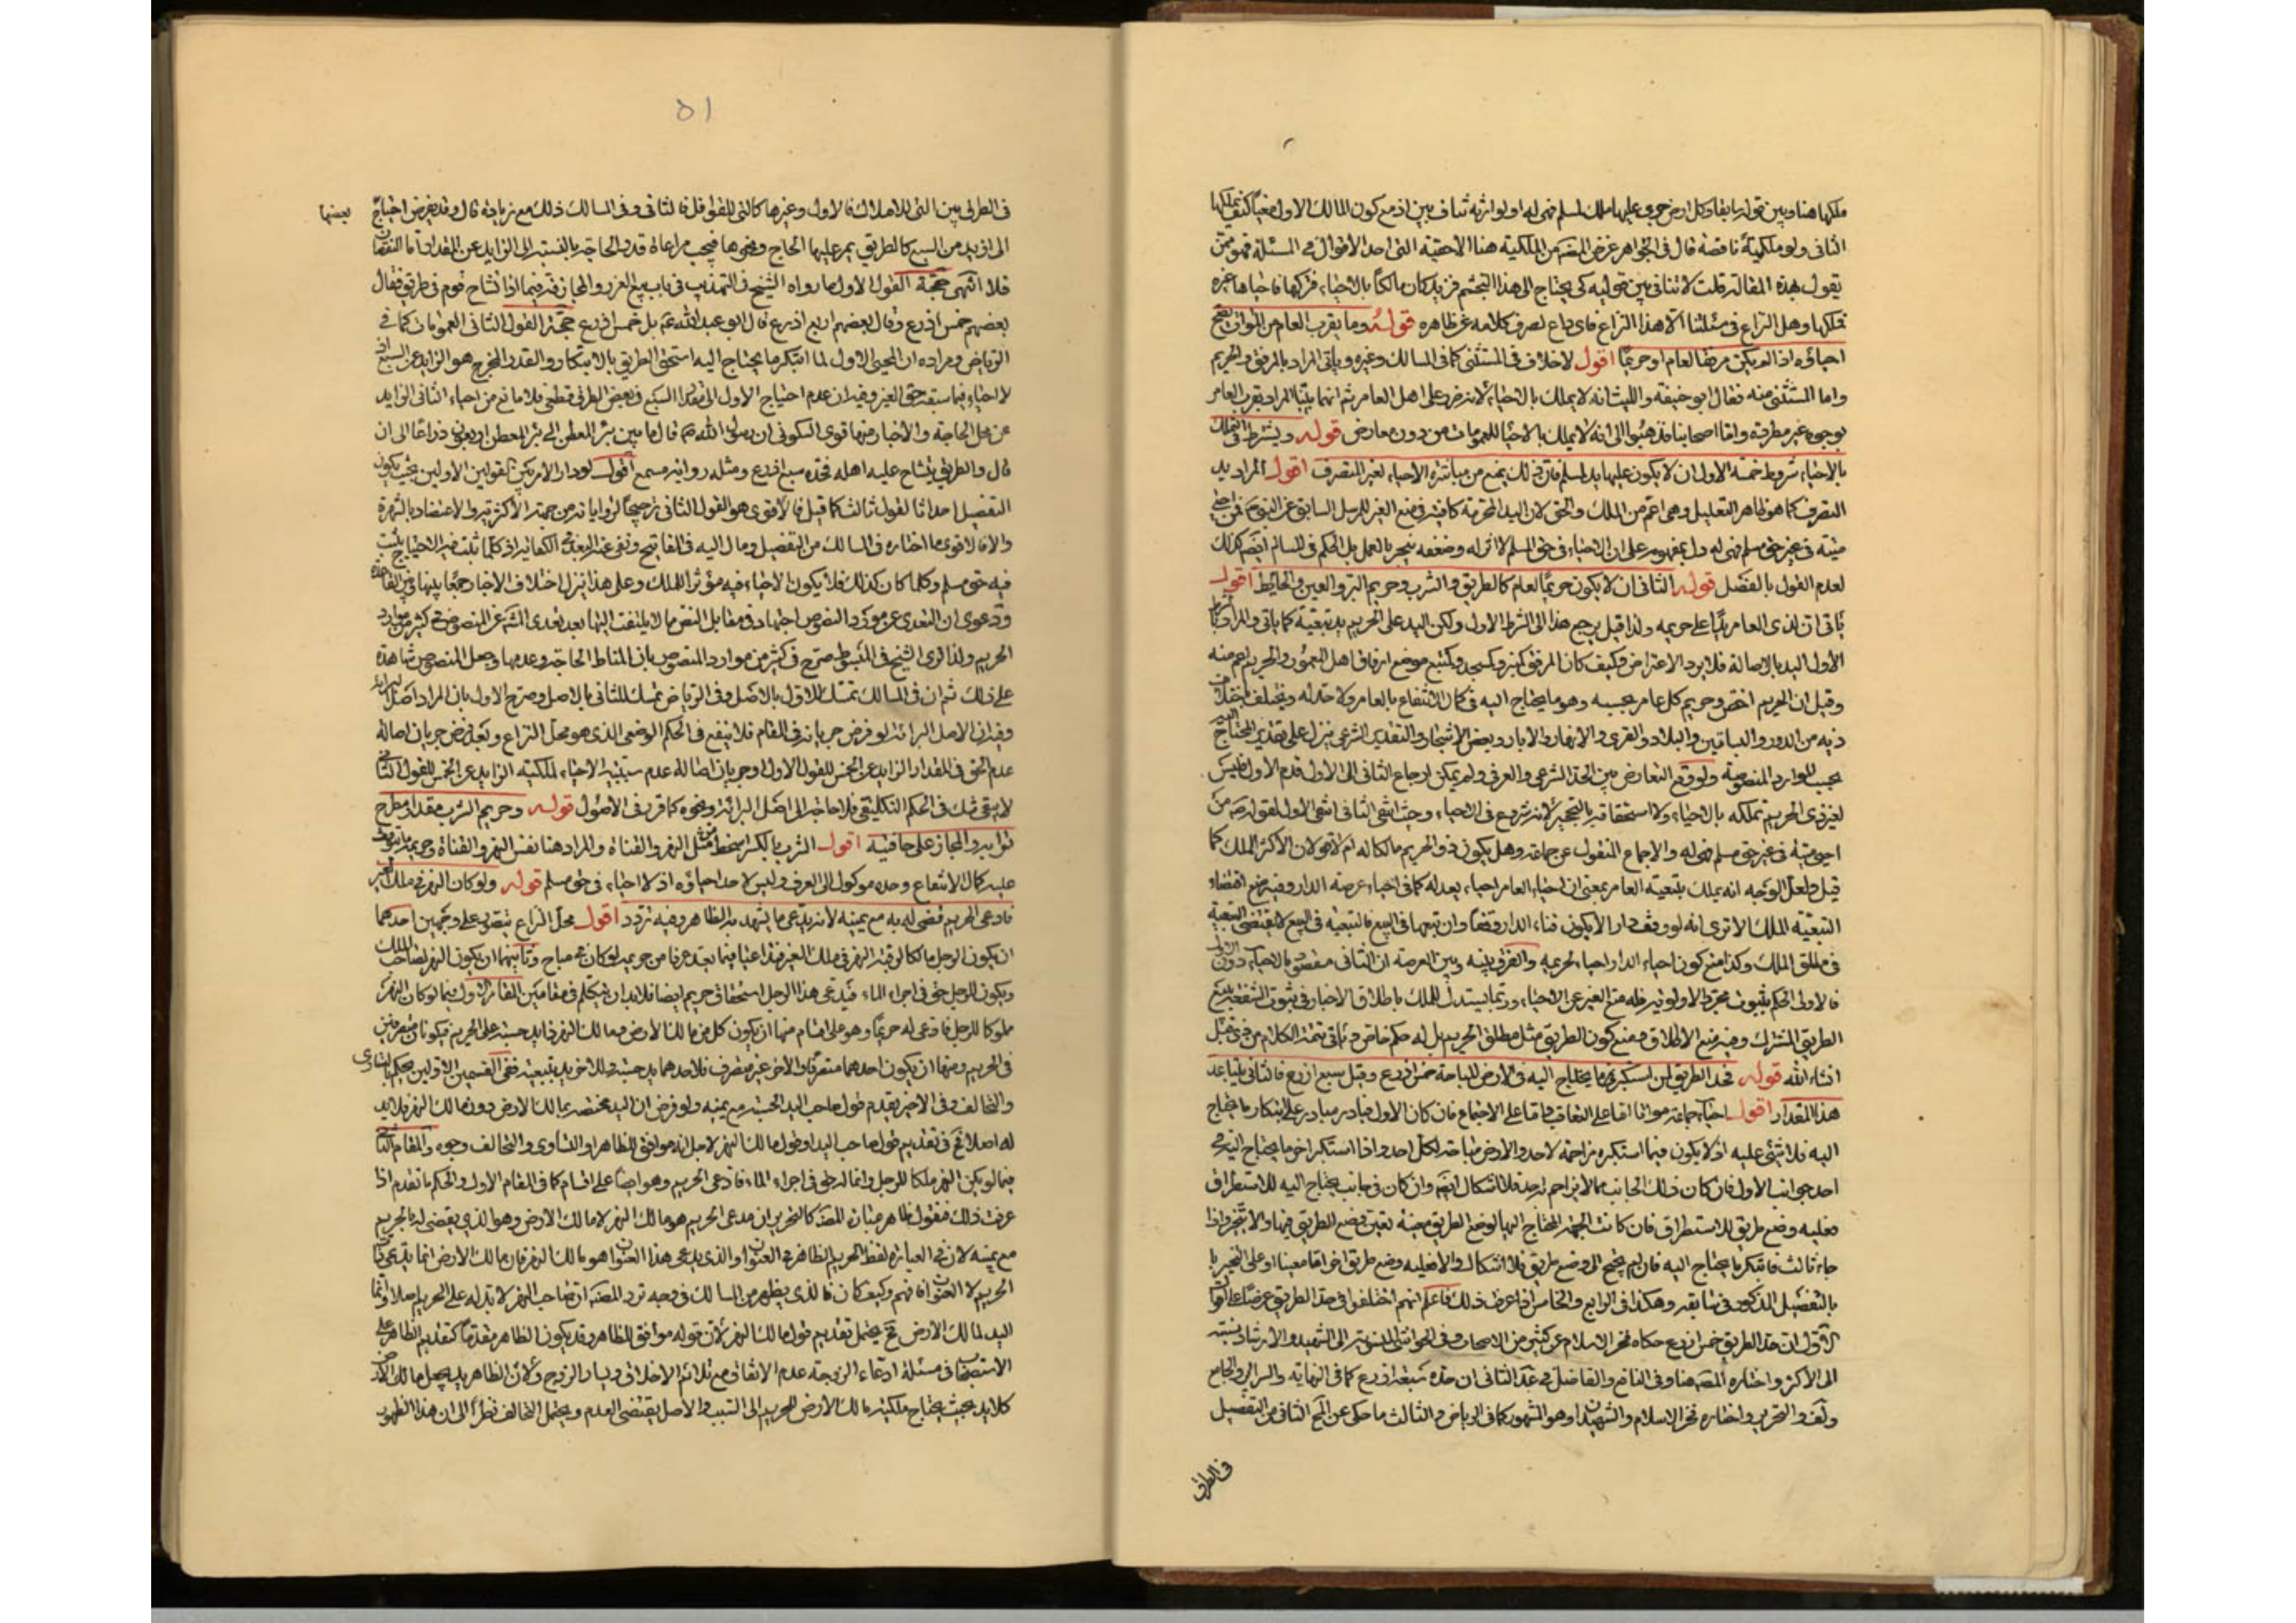 ملكها هنا وبين قوله سابقا وكل ارض جرى عليها ملك لمسلم فهي له او لوارثه تناف بين اذ مع كون المالك الاول معينا كيف يملكها
الثانى ولو ملكية ناقصة قال فى الجواهر غرض المصنف من الملكية هنا الاحقية التى احد الأقوال فى المسئلة فهو ممن
يقول هذه المقالة قلت لا تنافى بين قوليه كى يحتاج الى هذا التجشم فزيد كان مالكا بالاحياء فتركها فاحياها غيره
فملكها وهل النزاع فى مسئلتنا الا هذا النزاع فاى داع لصرف كلامه عن ظاهره قوله وما يقرب العامر من الموات يصح
احياؤه اذا لم يكن مرفقا للعامر او حريما اقول لاخلاف فى المستثنى كما فى المسالك وغيره وياتى المراد بالمرفق والحريم
واما المستثنى منه فقال ابو حنيفة والليث انه لا يملك بالاحياء لانه ضرر على اهل العامر ثم انهما بينا المراد بقرب العامر
بوجوه غير مطردة واما اصحابنا فذهبوا الى انه يملك بالاحياء للعمومات من دون معارض قوله ويشترط فى التملك
بالاحياء شروط خمسة الاول ان لا يكون عليها يد لمسلم فان ذلك يمنع من مباشرة الاحياء لغير المتصرف اقول المراد يد
التصرف كما هو ظاهر التعليل وهى اعم من الملك والحق لان اليد المحترمة كافية فى منع الغير للمرسل السابق عن النبى من احيى
ميتة فى غير حق مسلم فهى له دل بمفهومه على ان الاحياء فى حق المسلم لا اثر له وضعفه منجبر بالعمل بل الحكم فى المسالم ايضا كذلك
لعدم القول بالفصل قوله الثانى ان لا يكون حريما لعامر كالطريق والشرب وحريم البئر والعين والحائط اقول
ياتى ان لذى العامر يدا على حريمه ولذا قيل يرجع هذا الى الشرط الاول ولكن اليد على الحريم يد تبعية كما ياتى والمراد
الأول اليد بالاصالة فلا يرد الاعتراض وكيف كان المرفق كمنبر وكمسجد وكمتبع موضع ارتفاق اهل المعمور والحريم اعم منه
وقيل ان الحريم اخص وحريم كل عامر بحسبه وهو ما يحتاج اليه فى كمال الانتفاع بالعامر ولا حد له ويختلف باختلاف
ذيه من الدور والبساتين والبلاد والقرى والانهار والابار وبعض الاشجار والتقدير الشرعى ينزل على تقدير المحتاج اليه
بحسب الموارد المنصوصة ولو وقع التعارض بين الحد الشرعى والعرفى ولم يمكن ارجاع الثانى الى الاول قدم الاول فليس
لغير ذى الحريم تملكه بالاحياء ولا استحقاقه بالتحجير لانه شروع فى الاحياء وحيث انتفى الثانى انتفى الاول لقوله من
احيى ميتة فى غير حق مسلم فهى له والاجماع المنقول عن جماعة وهل يكون ذو الحريم مالكا له ام لا قولان الأكثر الملك كما
قيل ولعل الوجه انه يملك بتبعية العامر بمعنى ان احياء العامر احياء بعد له كما فى احياء عرصة الدار وفيه منع اقتضاء
التبعية الملك الا ترى انه لو وقف دارا لا يكون فناء الدار وقفا وان تبعها فى البيع فالتبعية فى البيع لا يقتضى التبعية
فى مطلق الملك وكذا منع كون احياء الدار احياء لحريمه والفرق بينه وبين العرصة ان الثانى مقصود بالاحياء دون الاول
فالاولى الحكم بثبوت مجرد الاولوية فله منع الغير عن الاحياء وربما يستدل للملك باطلاق الاخبار فى ثبوت الشفعة ببيع
الطريق المشترك وفيه منع الاطلاق ومنع كون الطريق مثل مطلق الحريم بل له حكم خاص وياتى تتمة الكلام من ذى قبل
انشاء الله قوله فحد الطريق لمن ابتكر ما يحتاج اليه فى الارض المباحة خمس اذرع وقيل سبع اذرع فالثانى يتباعد
هذا المقدار اقول احياء جماعة مواتا اما على التعاقب واما على الاجتماع فان كان الاول فبادر مبادر على ابتكار ما يحتاج
اليه فلا شئ عليه اذ لا يكون فيما استكبره مزاحمة لاحد والارض مباحة لكل احد واذا استكبر اخر ما يحتاج اليه فى
احد جوانب الأول فان كان ذلك الجانب مما لا يزاحم احد فلا اشكال ايضا وان كان فى جانب يحتاج اليه للاستطراق
فعليه وضع طريق للاستطراق فان كانت الجهة المحتاج اليها لوضع الطريق معينة تعين وضع الطريق فيها والا يتخير واذا
جاء ثالث فابتكر ما يحتاج اليه فان لم يحتج الى وضع طريق فلا اشكال والا فعليه وضع طريق اخر اما معينا او على التخيير
بالتفصيل المذكور فى سابقه وهكذا فى الرابع والخامس اذا عرفت ذلك فاعلم انهم اختلفوا فى حد الطريق عرضا على اقوال
الأول ان حد الطريق خمس اذرع حكاه فخر الاسلام عن كثير من الاصحاب وفى الحواشى المنسوبة الى الشهيد والارشاد نسبته
الى الاكثر واختاره المصنف هنا وفى النافع والفاضل فى عد الثانى ان حده سبعة اذرع كما فى النهاية والسرائر والجامع
ولف والتحرير واختاره فخر الاسلام والشهيدان وهو المشهور كما فى الرياض والثالث ما حكى عن المح الثانى من التفصيل
فى الطرق
٥١
فى الطرق بين التى للاملاك فالاول وغيرها كالتى للقوافل فالثانى وفى المسالك ذلك مع زيادة قال وقد يفرض احتياج
بعضها
الى ازيد من السبع كالطريق يمر عليها الحاج ونحوها فيجب مراعاة قدر الحاجة بالنسبة الى الزايد عن المقدار اما النقصان
فلا انتهى حجة القول الاول ما رواه الشيخ فى التهذيب فى باب بيع الغرر والمجازفة فيما اذا تشاح قوم فى طريق فقال
بعضهم خمس اذرع وقال بعضهم اربع اذرع قال ابو عبد الله ع بل خمس اذرع حجة القول الثانى العمومات كما فى
الرياض ومراده ان المحيى الاول لما ابتكر ما يحتاج اليه استحق الطريق بالابتكار والقدر المخرج هو الزايد عن السبع اذ
لا احياء فيما سبقه حق الغير وفيه ان عدم احتياج الاول الى مقدار السبع فى بعض الطرق قطعى فلا مانع من احياء الثانى الزايد
عن محل الحاجة والاخبار منها قوى السكونى ان رسول الله ص قال ما بين بئر المعطن الى بئر المعطن اربعون ذراعا الى ان
قال والطريق يتشاح عليه اهله فحده سبع اذرع ومثله رواية مسمع اقول لو دار الامر بين القولين الاولين بحيث يكون
التفصيل احداثا لقول ثالث كما قيل فالاقوى هو القول الثانى ترجيحا لرواياته من جهة الاكثرية والاعتضاد بالشهرة
والا فالاقوى ما اختاره فى المسالك من التفصيل ومال اليه فى المفاتيح ونفى عنه البعد فى الكفاية اذ كلما ثبت فيه الاحتياج يثبت
فيه حق مسلم وكلما كان كذلك فلا يكون الاحياء فيه مؤثرا للملك وعلى هذا ينزل اختلاف الاخبار جمعا بينها وبين القاعدة
ودعوى ان التعدى عن مورد النصوص اجتهاد فى مقابل النص مما لا يلتفت اليها بعد تعدى الشيخ عن المنصوص فى كثير من موارد
الحريم ولذا ترى الشيخ فى المبسوط صرح فى كثير من موارد المنصوص بان المناط الحاجة وعدمها وجعل المنصوص شاهدة
على ذلك ثم ان فى المسالك تمسك للاول بالاصل وفى الرياض تمسك للثانى بالاصل وصرح الاول بان المراد اصل البرائة
وفيه ان الاصل البرائة لو فرض جريانه فى المقام فلا ينفع فى الحكم الوضعى الذى هو محل النزاع وبعد فرض جريان اصالة
عدم الحق فى المقدار الزايد عن الخمس للقول الاول وجريان اصالة عدم سببية الاحياء لملكية الزايد عن الخمس للقول الثانى
لا يبقى شك فى الحكم التكليفى فلا حاجة الى اصل البرائة ونحوه كما قرر فى الاصول قوله وحريم الشرب مقدار مطرح
ترابه والمجاز على حافتيه اقول الشرب بالكسر مثل النهر والقناة والمراد هنا نفس النهر والقناة وحريمه ما يتوقف
عليه كمال الانتفاع وحده موكول الى العرف وليس لاحد احياؤه اذ لا احياء فى حق مسلم قوله ولو كان النهر فى ملك الغير
فادعى الحريم قضى له به مع يمينه لانه يدعى ما يشهد به الظاهر وفيه تردد اقول محل النزاع يتصور على وجهين احدهما
ان يكون الرجل مالكا لرقبة النهر فى ملك الغير فتداعيا فيما يعد عرفا من حريمه لو كان فى مباح وثانيهما ان يكون النهر لصاحب الملك
ويكون للرجل حق فى اجراء الماء فيدعى هذا الرجل استحقاق حريم ايضا فلا بد ان نتكلم فى مقامين المقام الاول فيما لو كان النهر
مملوكا للرجل فادعى له حريما وهو على اقسام منها ان يكون كل من مالك الأرض ومالك النهر ذا يد حسية على الحريم فيكونان متصرفين
فى الحريم ومنها ان يكون احدهما متصرفا والآخر غير متصرف فلاحدهما يد حسية وللآخر يد تبعية ففى القسمين الاولين يحكم بالتساوى
والتحالف وفى الاخير يقدم قول صاحب اليد الحسية مع يمينه ولو فرض ان اليد مختصة بمالك الارض دون مالك النهر فلا يد
له اصلا فح فى تقديم قول صاحب اليد او قول مالك النهر لاجل انه موافق للظاهر او التساوى والتحالف وجوه والمقام الثانى
فيما لو لم يكن النهر ملكا للرجل وانما له حق فى اجراء الماء فادعى الحريم وهو ايضا على اقسام كما فى المقام الاول والحكم ما تقدم اذا
عرفت ذلك فنقول ظاهر عبارة المصنف كالتحرير ان مدعى الحريم هو مالك النهر لا مالك الارض وهو الذى يقضى له بالحريم
مع يمينه لان فى العبارة لفظ الحريم الظاهر فى العنوان والذى يدعى هذا العنوان هو مالك النهر فان مالك الارض انما يدعى
الحريم لا العنوان فافهم وكيف كان فالذى يظهر من المسالك فى وجه تردد المصنف ان صاحب النهر لا يد له على الحريم اصلا وانما
اليد لمالك الارض فح يحتمل تقديم قول مالك النهر لان قوله موافق للظاهر وقد يكون الظاهر مقدما كتقديم الظاهر على
الاستصحاب فى مسئلة ادعاء الزوجة عدم الانفاق مع تلائم الاخلاق ويسار الزوج ولان الظاهر يد يجعل مالك الارض
كلا يد بحيث يحتاج ملكية مالك الارض للحريم الى السبب والاصل يقتضى العدم ويحتمل التحالف نظرا الى ان هذا الظهور